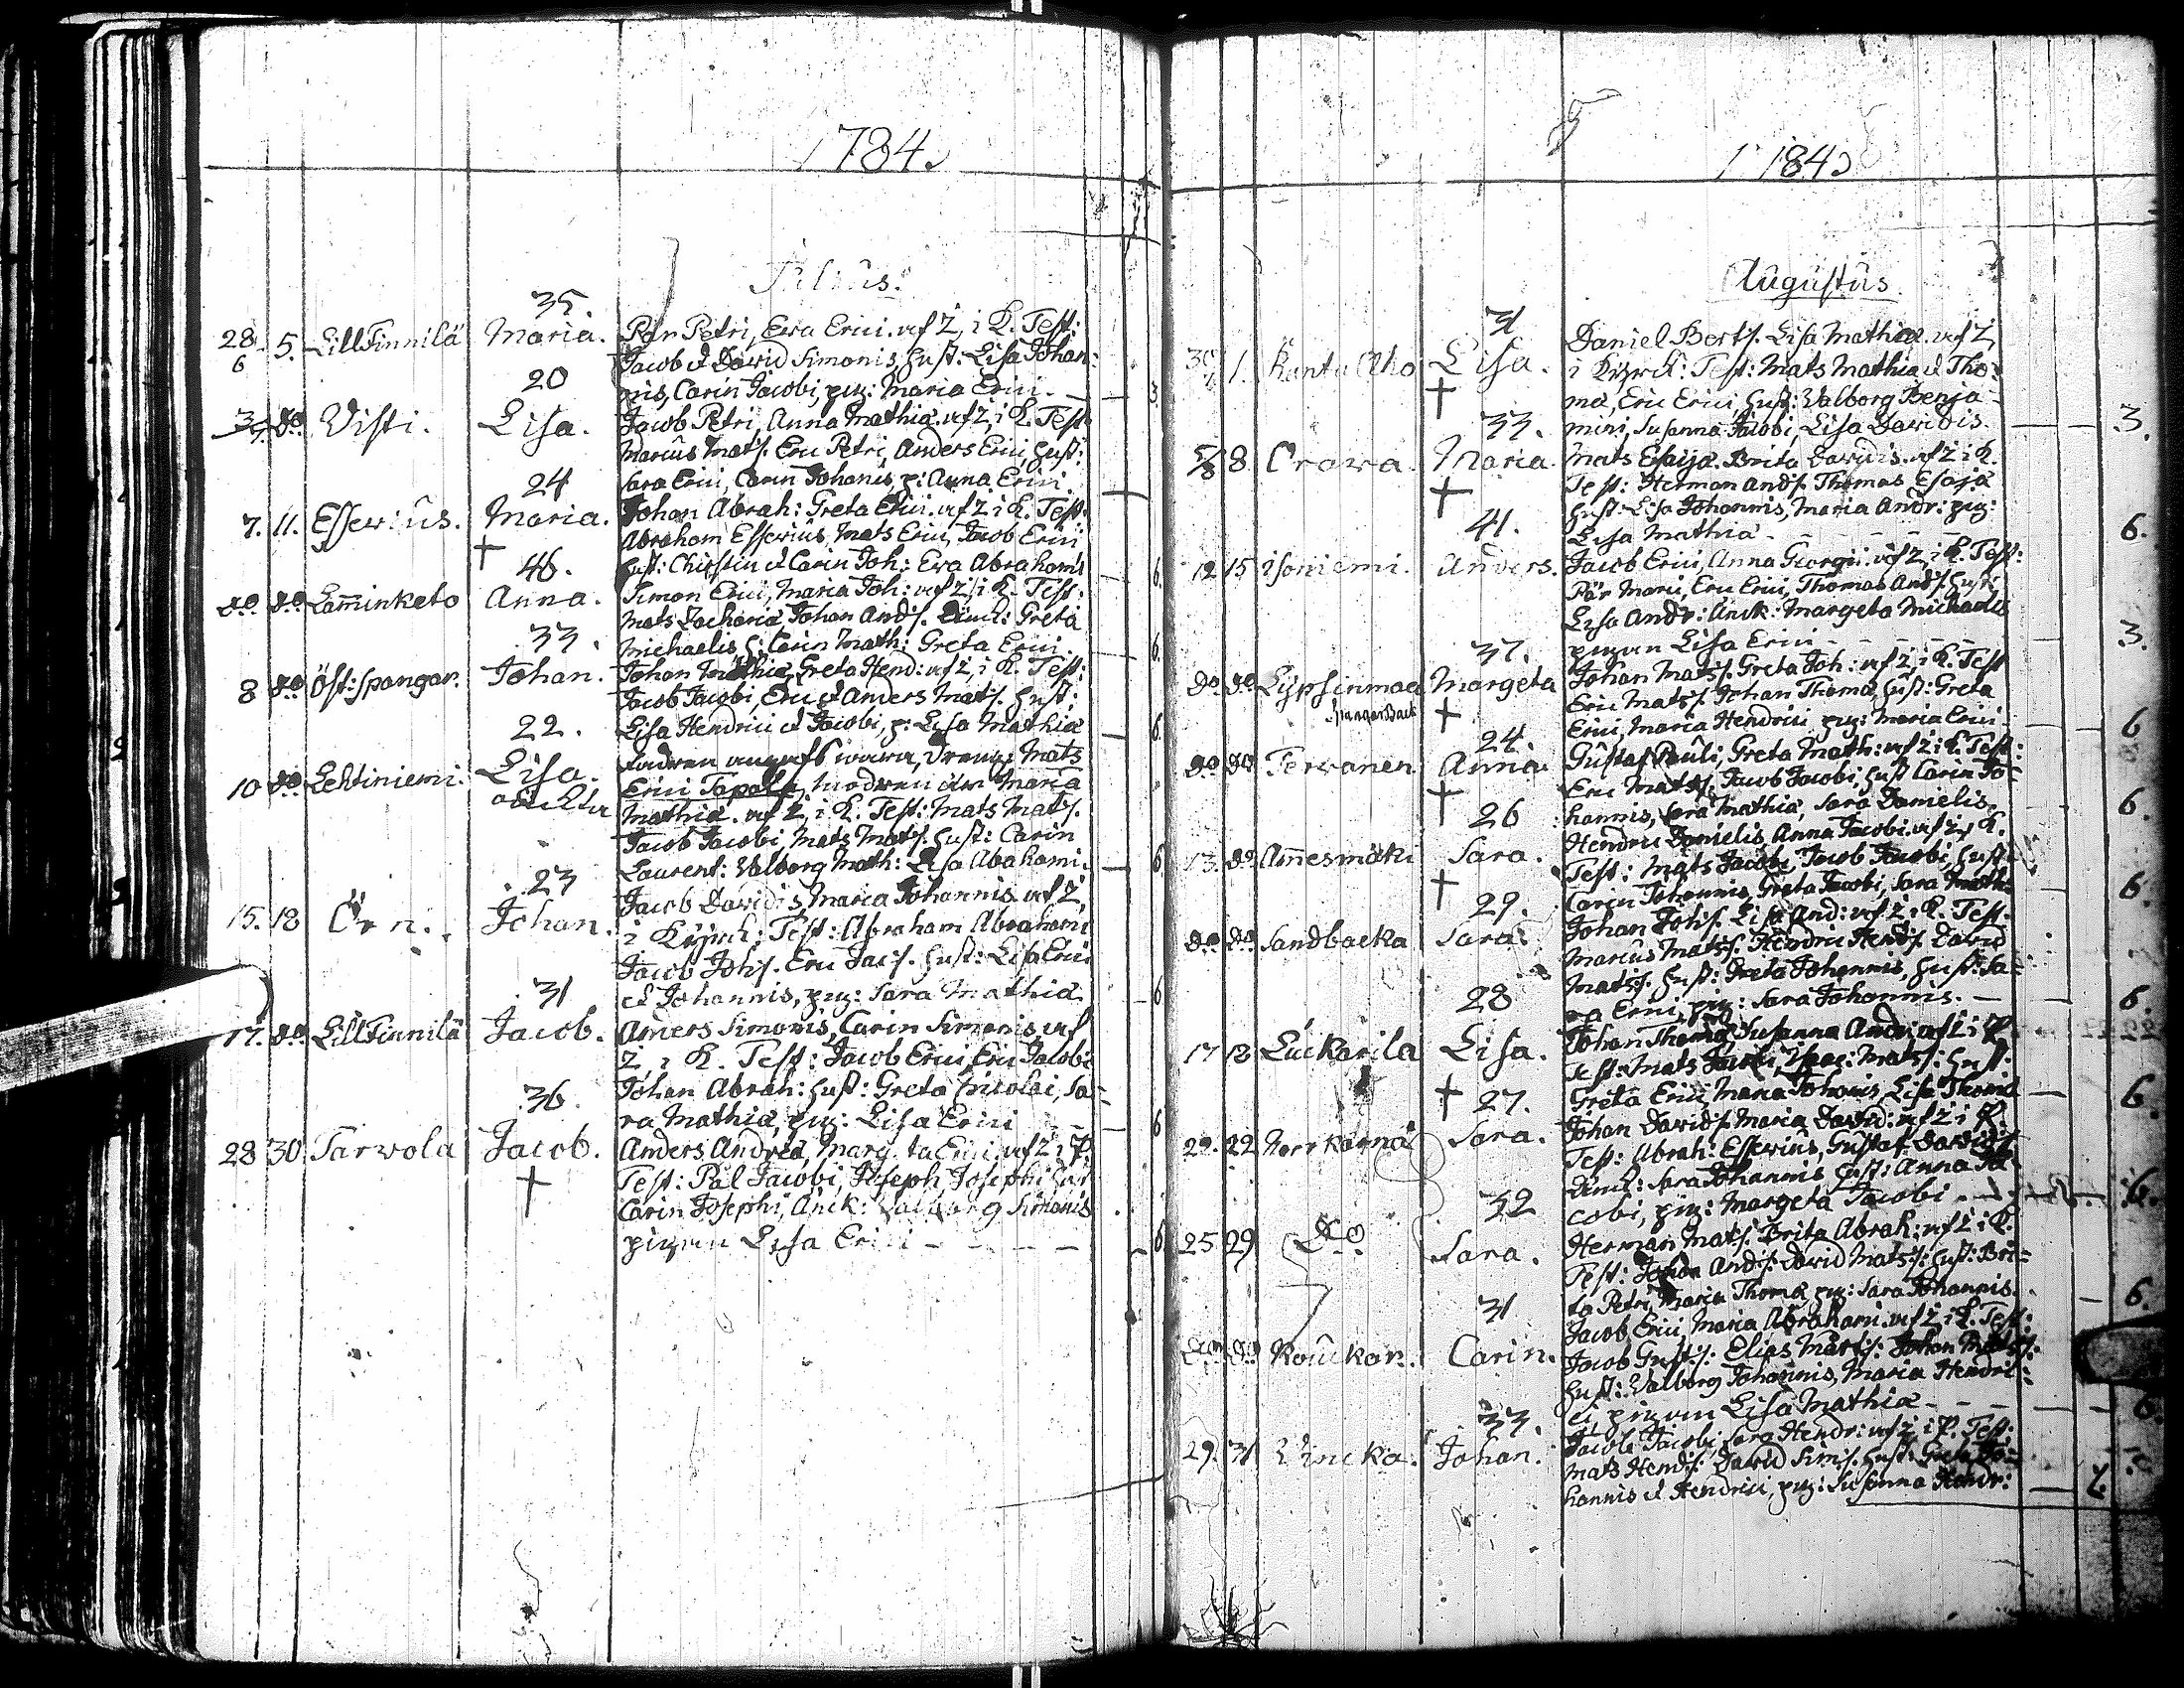 1784.
Julius.
35.
28/6 5. LillFinnilä Maria. Petri, Ewa Erici. uf Z, i K. Test:
Jacob et David Simonis, hust: Lisa Johan:
20 nis, Carin Jacobi, pig: Maria Erici.
3/7 do Visti. Lisa. Jacob Petri, Anna Mathiæ. uf Z, i K. Test:
Marcus Mats. Eric Petri, Anders Erici, hust:
24 Sara Erici, Carin Johanis, p: Anna Erici.
7. 11. Esserius. Maria. Johan Abrah: Greta Erici. uf Z i K. Test:
Abraham Esserius, Mats Erici, Jacob Erici
† 46. hust: Christin et Carin Joh: Ewa Abrahami
do do Lam̄inketo Anna. Simon Erici, Maria Joh: uf Z, i K. Test:
Mats Zachariæ Johan Ands. Greta
33. Michaelis, h: Carin Math: Greta Erici.
8 do Öst:spångar. Johan. Johan Mathiæ, Greta Hend: uf Z, i K. Test:
Jacob Jacobi, Eric et Anders Mats. hust:
22. Lisa Hendrici et Jacobi, p: Lisa Mathiæ
10 do Lehtiniemi. Lisa. Fadren wara, dreng: Mats
Erici Tapola, modren Maria
Mathiæ. uf Z, i K. Test: Mats Mats.
Jacob Jacobi, Mats Mats. hust: Carin
Laurent: Valborg Math: Lisa Abahami.
23 Jacob Davidis, Maria Johannis. uf Z,
15. 18 Örn. Johan. i Kyrck: Test: Abraham Abrahami
Jacob Johs. Eric Jacs. hust: Lisa Erici
31 et Johannis, pig: Sara Mathiæ
17. do LillFinnilä Jacob. Anders Simonis, Carin Simonis uf
Z, i K. Test: Jacob Erici, Eric Jacobi
36. Johan Abrah: hust: Greta Nicolai, Sa=
ra Mathiæ, pig: Lisa Erici
28 30 Tarvola Jacob. Anders Andreæ, Margeta Erici. uf Z i P.
† Test: Pål Jacobi, Joseph Josephi hust
Carin Josephi, Änck: Valborg Simonis
pigan Lisa Erici
184.
Augustus.
31 Daniel Berts. Lisa Mathiæ. uf Z,
1. Rantalaho Lisa. i Kyrck: Test: Mats Mathiæ et Tho:
† mæ, Eric Erici, hust: Valborg Benja=
33. mini, Susanna Jacobi, Lisa Davidis. 3.
5/8 8. Orawa. Maria. Mats Esaijæ. Brita Davidis. uf Z i K.
† Test: Herman Ands. Thomas Esajæ
41. hust: Lisa Johannis, Maria Andr: pig:
Lisa Mathiæ 6.
12 15 Isoniemi. Anders. Jacob Erici, Anna Georgii. uf Z, i K. Test:
Pär Marci, Eric Erici, Thomas Ands. hust:
Lisa Andr: Änck: Margeta Michaelis
37. pigan Lisa Erici 3.
do do Lypsinmaa Margeta Johan Mats. Greta Joh: uf Z, i K. Test
SpangarBack † Eric Mats. Johan Thomæ, hust: Greta
24. Erici, Maria Hendrici pig: Maria Erici 6
do do Tervonen Anna Gustaf Pauli, Greta Math: uf Z i K. Test:
† Eric Mats. Jacob Jacobi, hust Carin Jo=
26 hannis, Sara Mathiæ, Sara Danielis. 6.
13. do Am̄esmäki Sara. Hendric Danielis, Anna Jacobi. uf Z, i K.
† Test: Mats Jacobi, Jacob Jacobi, hust:
29. Carin Johannis, Greta Jacobi, Sara Math: 6.
do do Sandbacka Sara. Johan Johs. Lisa And: uf Z i K. Test.
Marcus Mats. Hendric Hends. David
Mats. hust: Greta Johannis, hust: Sa=
28 ra Erici, pig: Sara Johannis. 6.
17 18 Luckarila Lisa. Johan Thomæ, Susanna Andr: uf Z i P.
Test: Mats Isac: Mats: hust:
† 27. Greta Erici, Maria Johanis, Lisa Thomæ 6.
22 Norrkarna Sara. Johan Davids. Maria David: uf Z i P.
Test: Abrah: Esserius, Gustaf Davids.
Änck: Sara Johannis, hust: Anna Ja=
32 cobi, pig: Margeta Jacobi 6.
25 29 Do Sara. Herman Mats. Brita Abrah: uf Z i K.
Test: Johan Ands. David Mats: hust: Bri=
ta Petri, Maria Thomæ, pig: Sara Johannis. 6.
31 Jacob Erici, Maria Abrahami. uf Z, i K. Test:
do do Kouckar. Carin. Jacob Gusts: Elias Marts: Johan Mats:
hust: Valborg Johannis, Maria Hendri=
33. ci, pigan Lisa Mathiæ 6.
29. 31 Vincka. Johan. Jacob Jacobi, Sara Hendr: uf Z, i P. Test:
Mats Hends. David Sims. hust: Greta Jo=
hannis et Hendrici, pig: Susanna Hendr: